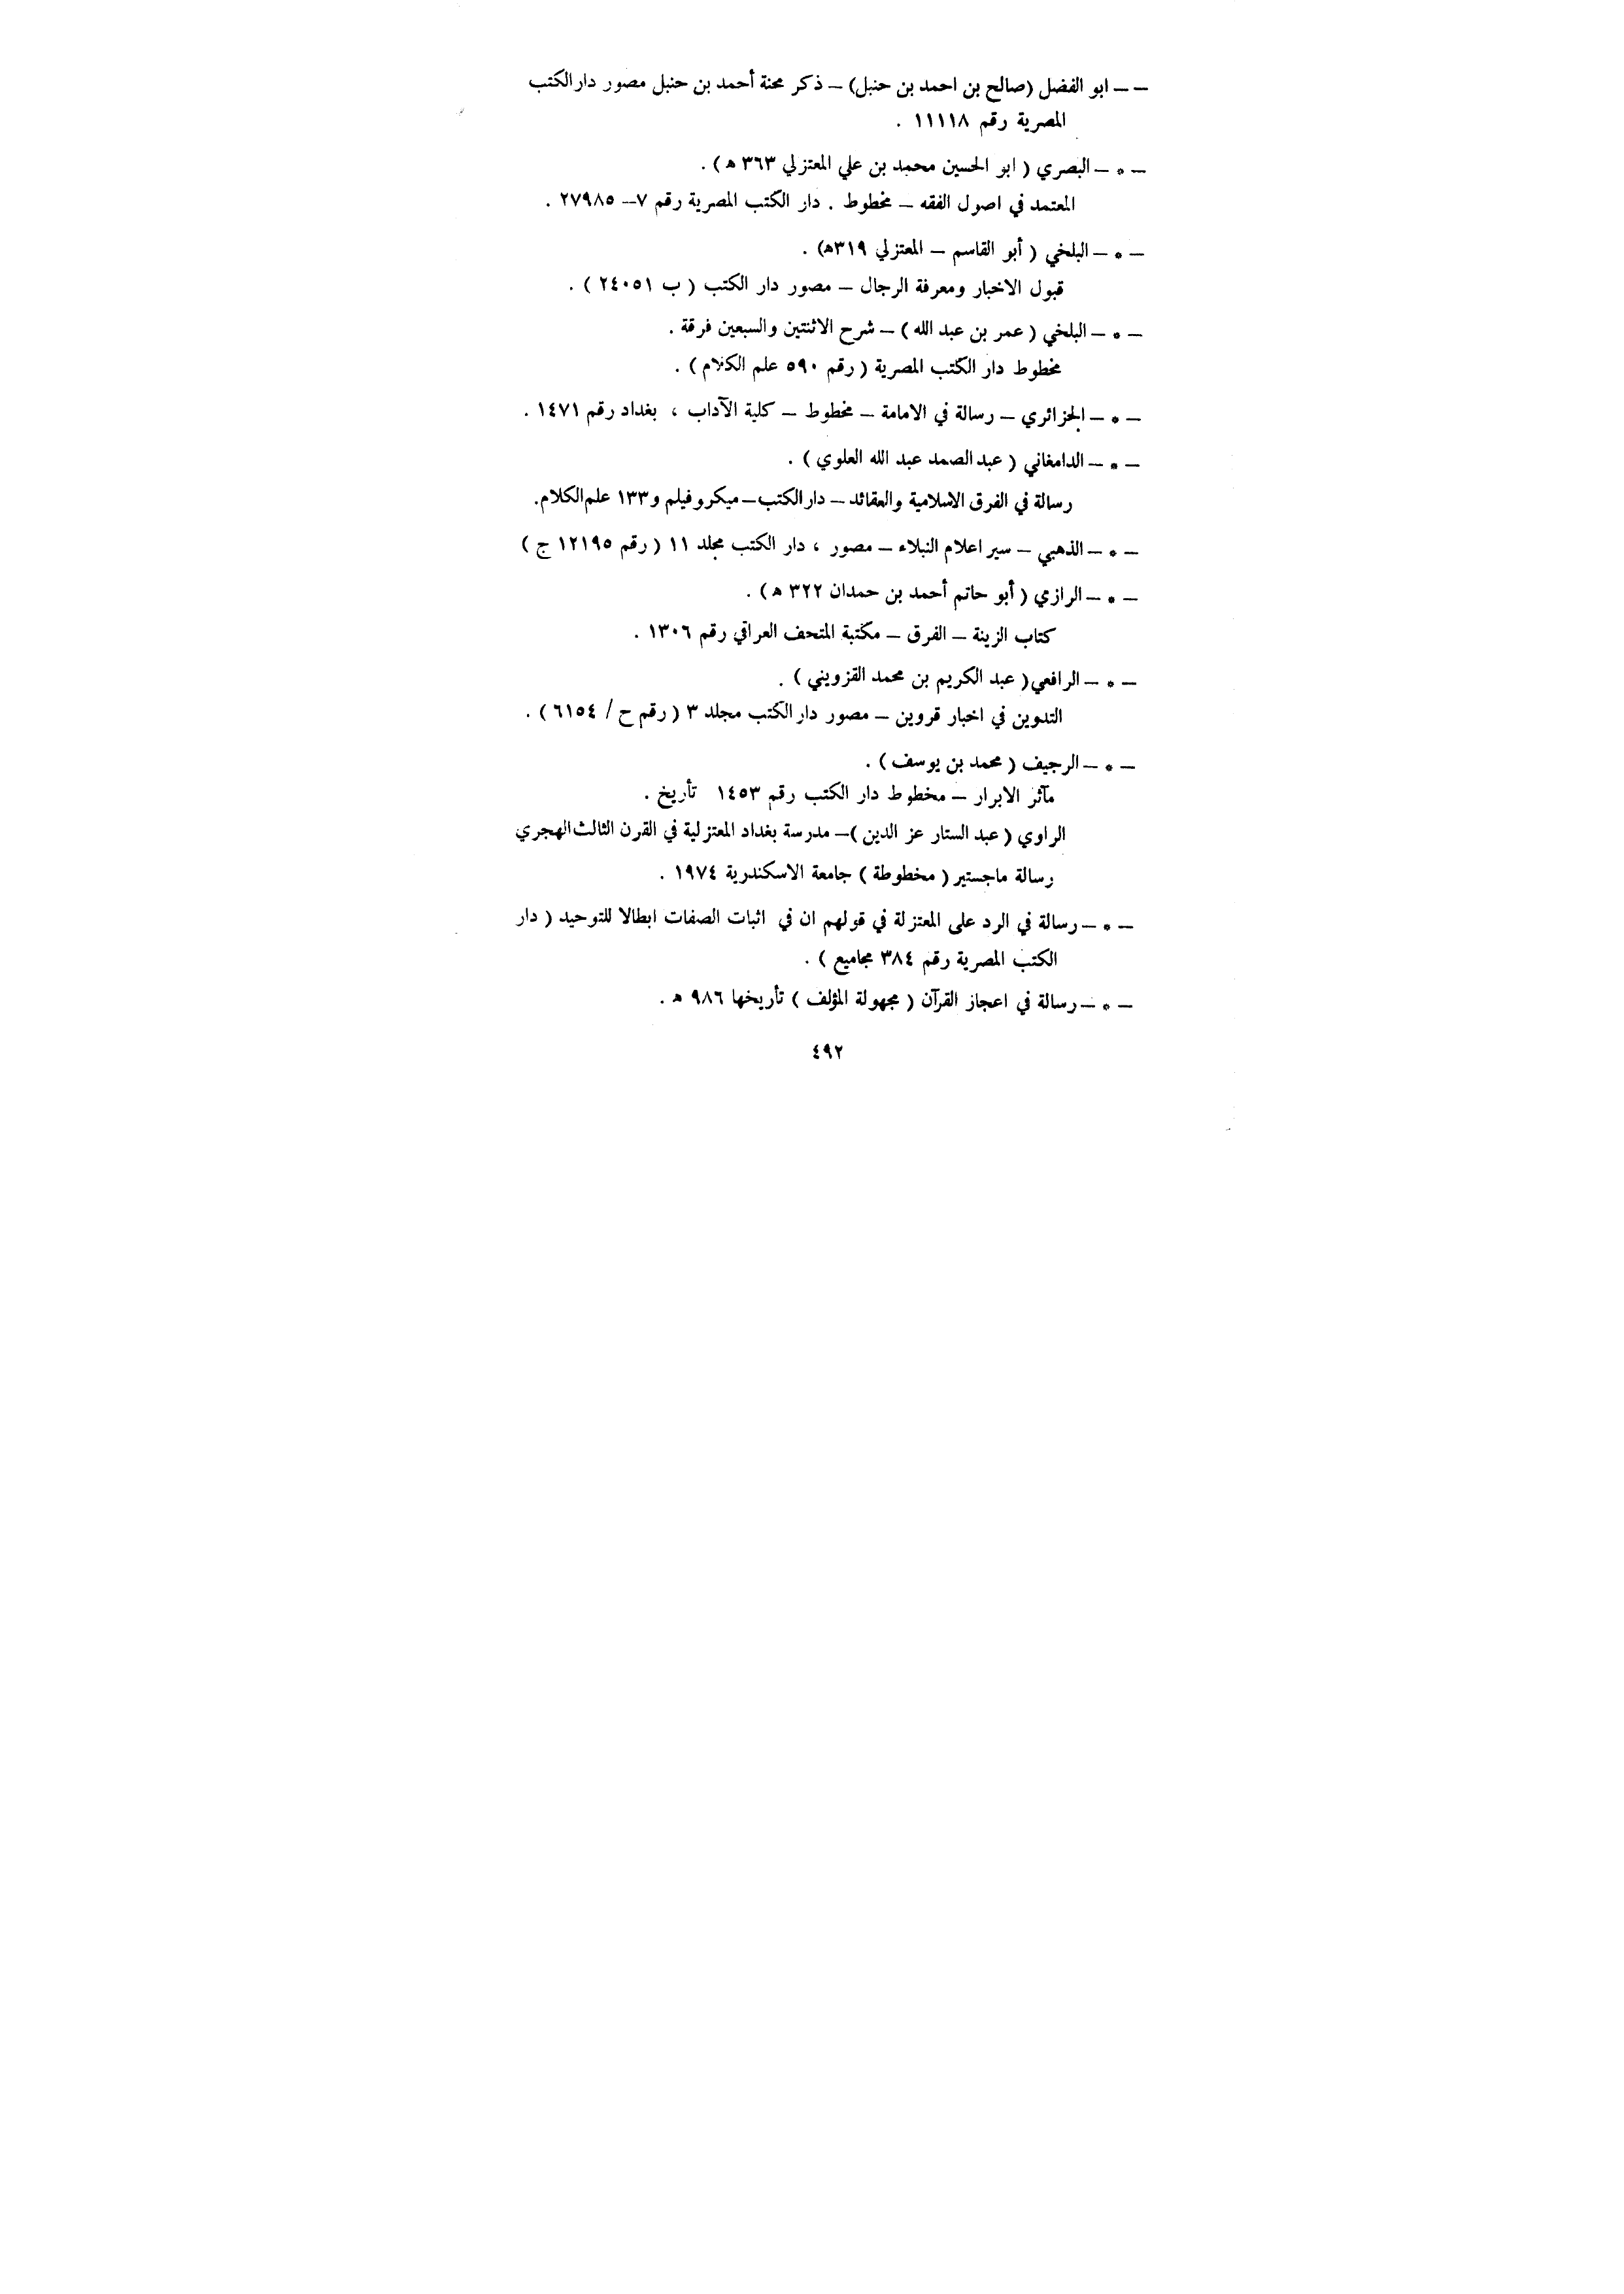 — — ابو الفضل (صالح بن احمد بن حنبل) — ذكر محنة أحمد بن حنبل مصور دار الكتب
المصرية رقم ١١١١٨ .
— * — البصري ( ابو الحسين محمد بن علي المعتزلي ٣٦٣ ه ) .
المعتمد في اصول الفقه — مخطوط . دار الكتب المصرية رقم ٧— ٢٧٩٨٥ .
— * — البلخي ( أبو القاسم — المعتزلي ٣١٩ه) .
قبول الاخبار ومعرفة الرجال — مصور دار الكتب ( ب ٢٤٠٥١ ) .
— * — البلخي ( عمر بن عبد الله ) — شرح الاثنتين والسبعين فرقة .
مخطوط دار الكتب المصرية ( رقم ٥٩٠ علم الكلام ) .
— * — الجزائري — رسالة في الامامة — مخطوط — كلية الآداب ، بغداد رقم ١٤٧١ .
— * — الدامغاني ( عبد الصمد عبد الله العلوي ) .
رسالة في الفرق الاسلامية والعقائد — دار الكتب — ميكروفيلم و ١٣٣ علم الكلام.
— * — الذهبي — سير اعلام النبلاء — مصور ، دار الكتب مجلد ١١ ( رقم ١٢١٩٥ ج )
— * — الرازي ( أبو حاتم أحمد بن حمدان ٣٢٢ ه ) .
كتاب الزينة — الفرق — مكتبة المتحف العراقي رقم ١٣٠٦ .
— * — الرافعي ( عبد الكريم بن محمد القزويني ) .
التدوين في اخبار قروين — مصور دار الكتب مجلد ٣ ( رقم ح / ٦١٥٤ ) .
— * — الرجيف ( محمد بن يوسف ) .
مآثر الابرار — مخطوط دار الكتب رقم ١٤٥٣ تأريخ .
الراوي ( عبد الستار عز الدين ) — مدرسة بغداد المعتزلية في القرن الثالث الهجري
رسالة ماجستير ( مخطوطة ) جامعة الاسكندرية ١٩٧٤ .
— * — رسالة في الرد على المعتزلة في قولهم ان في اثبات الصفات ابطالا للتوحيد ( دار
الكتب المصرية رقم ٣٨٤ مجاميع ) .
— * — رسالة في اعجاز القرآن ( مجهولة المؤلف ) تأريخها ٩٨٦ ه .
٤٩٢